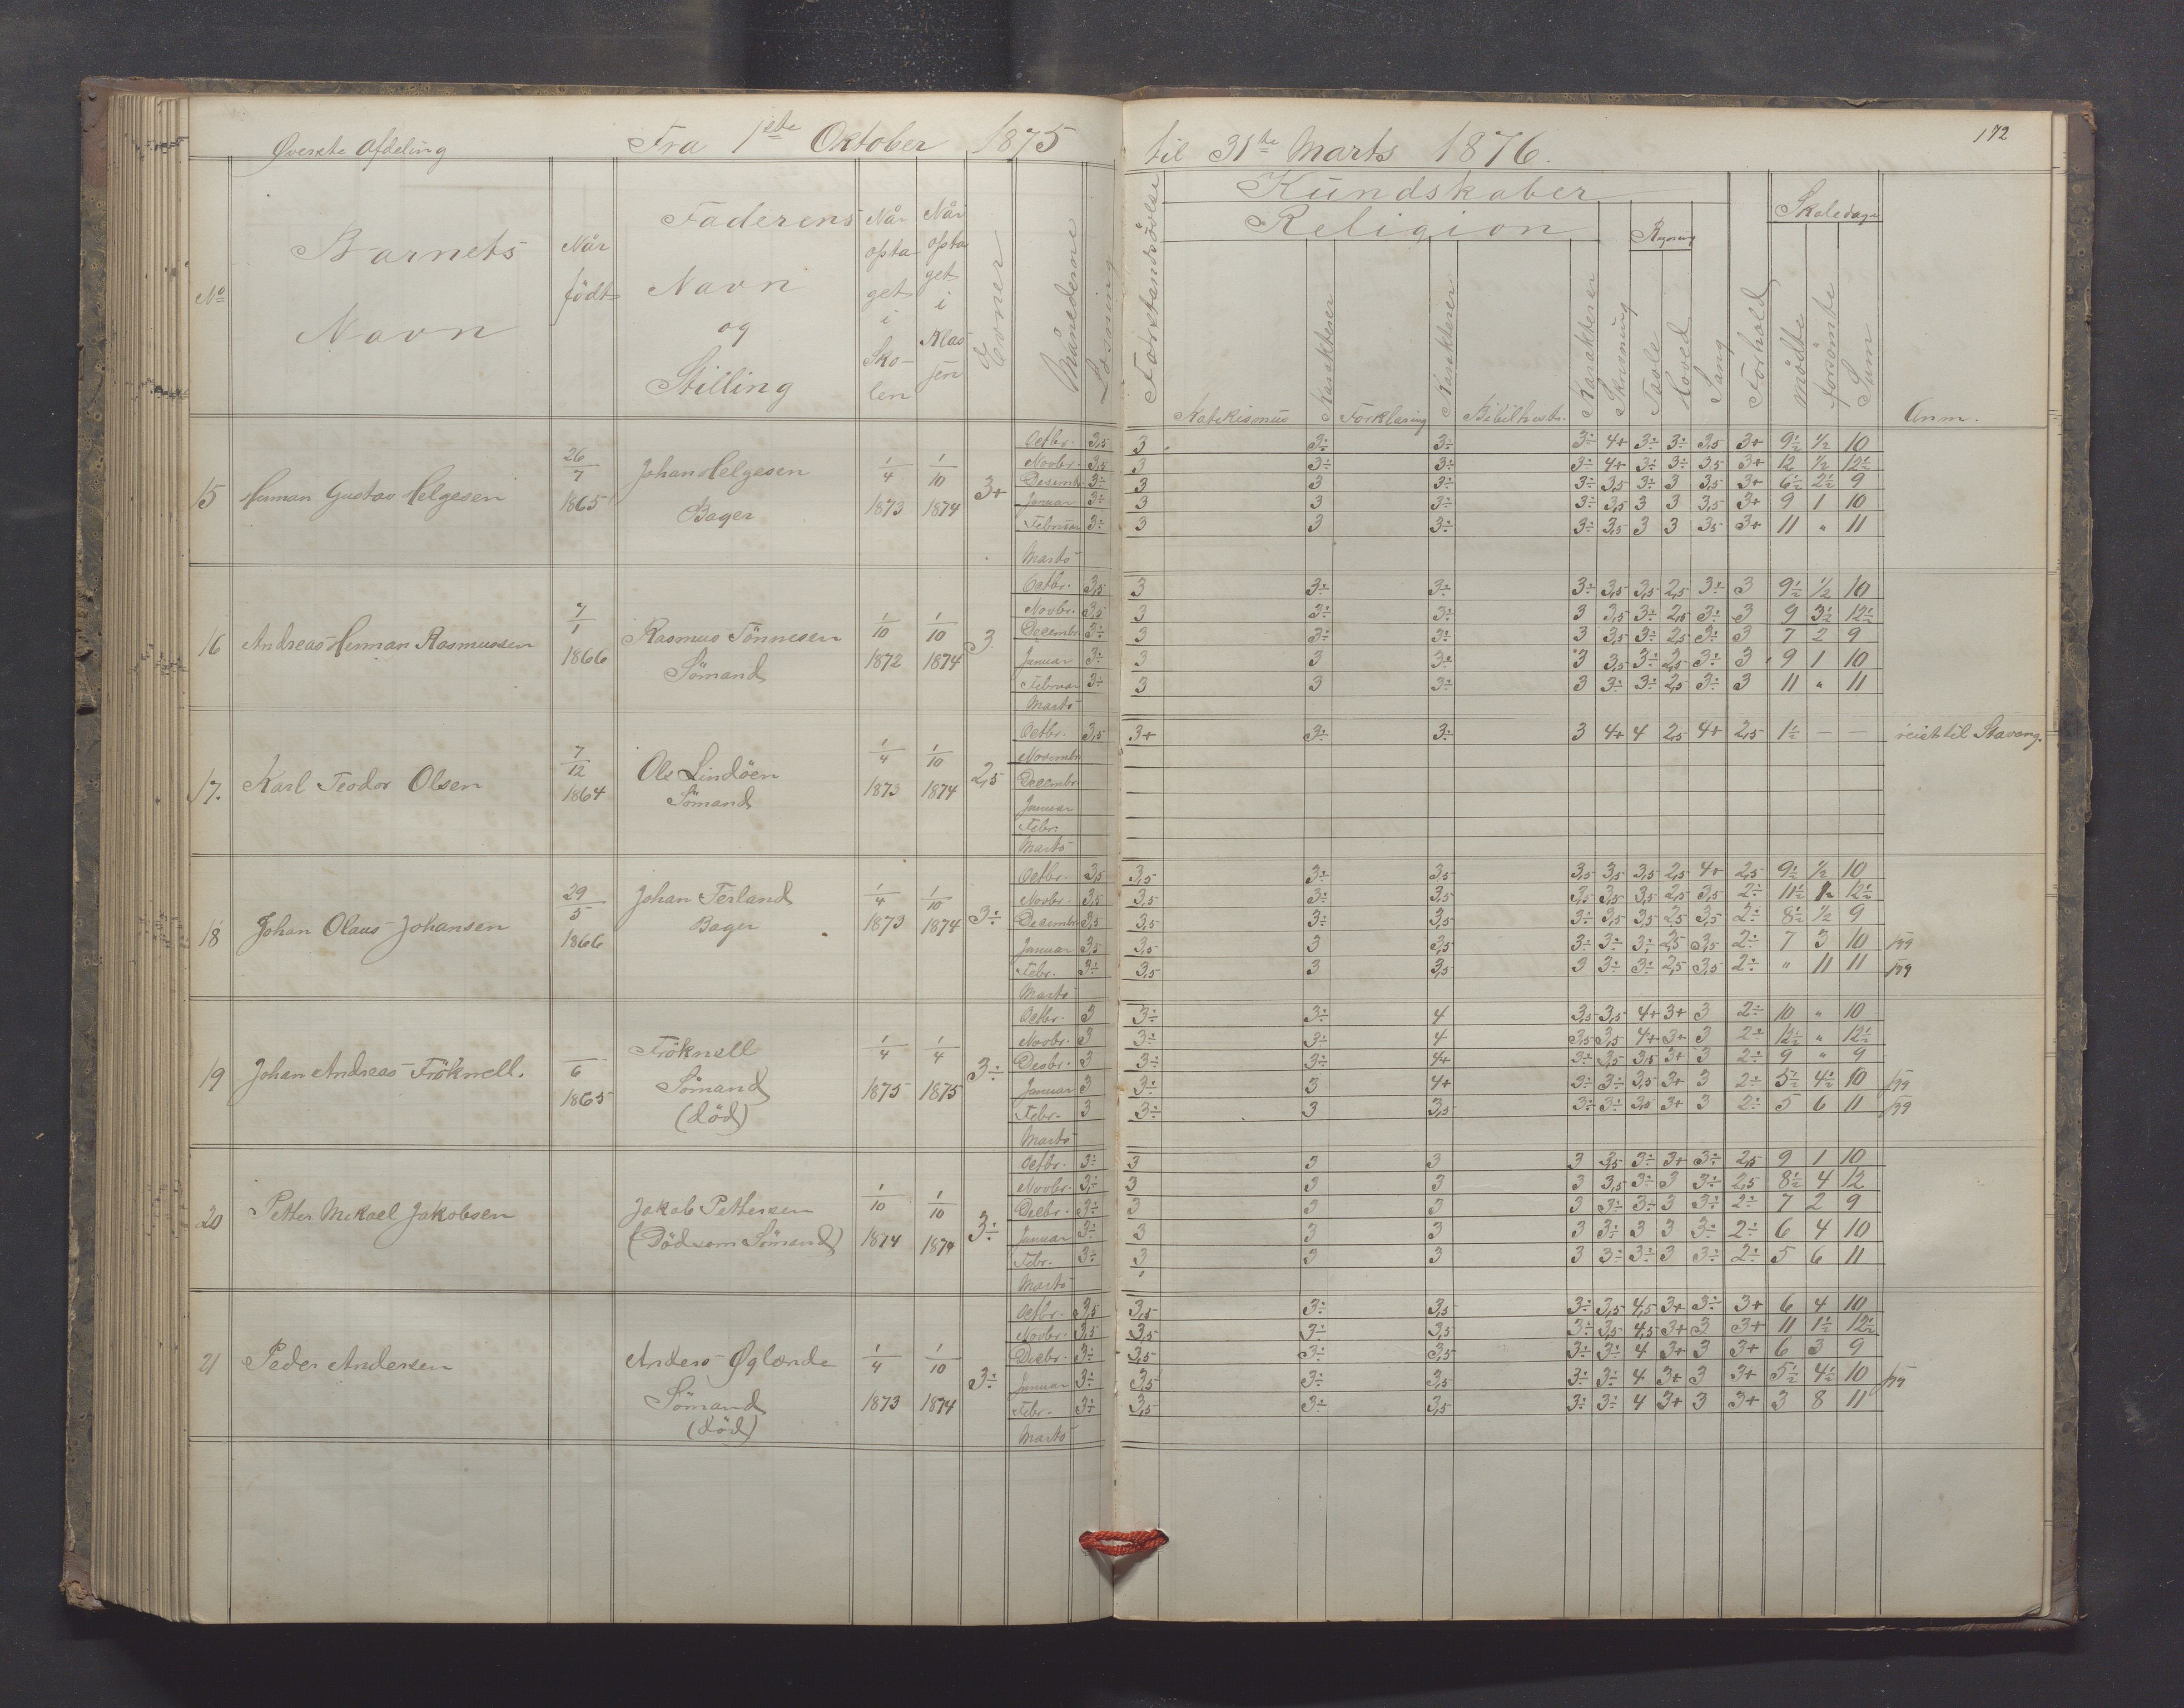 Øverste Afdeling Fra 1ste Oktober 1875 til 31te Marts 1876. 172
No Barnets Navn Når født Faderens Navn og Stilling Når optaget i Skolen Når optaget i Klassen Evner Månederne Læsning Forstandsøvelse Kundskaber Forhold Skoledage Anm.
Religion Regning
Katekismus Karakterer Forklaring Karakterer Bibelhistr. Karakterer Skrivning Tavle Hoved Sang mødte forsømte Sum
15 Herman Gustav Helgesen 26/7 1865 Johan Helgesen Bager 1/4 1873 1/10 1874 3+
Octbr. 3,5 3 3÷ 3÷ 3÷ 4+ 3÷ 3÷ 3,5 3+ 9½ ½ 10
Novbr. 3,5 3 3÷ 3÷ 3÷ 4+ 3÷ 3÷ 3,5 3+ 12 ½ 12½
Decembr. 3÷ 3 3 3÷ 3÷ 3,5 3÷ 3 3,5 3+ 6½ 2½ 9
Januar 3÷ 3 3 3÷ 3÷ 3,5 3 3 3,5 3+ 9 1 10
Februar 3÷ 3 3 3÷ 3÷ 3,5 3 3 3,5 3+ 11 " 11
Marts
16 Andreas Herman Rasmussen 7/1 1866 Rasmus Tönnesen Sömand 1/10 1872 1/10 1874 3
Octbr. 3,5 3 3÷ 3÷ 3÷ 3,5 3,5 2,5 3÷ 3 9½ ½ 10
Novbr. 3,5 3 3÷ 3÷ 3 3,5 3÷ 2,5 3÷ 3 9 3½ 12½
Decembr. 3÷ 3 3÷ 3÷ 3 3,5 3÷ 2,5 3÷ 3 7 2 9
Januar 3÷ 3 3 3÷ 3 3,5 3÷ 2,5 3÷ 3 9 1 10
Februar 3÷ 3 3 3÷ 3 3÷ 3÷ 2,5 3÷ 3 11 " 11
Marts
17. Karl Teodor Olsen 7/12 1864 Ole Lindöen Sömand 1/4 1873 1/10 1874 2,5
Octbr. 3,5 3+ 3÷ 3÷ 3 4+ 4 2,5 4+ 2,5 1½ — — reist til Stavang.
Novembr.
Decembr.
Januar
Febr.
Marts
18 Johan Olaus Johansen 29/5 1866 Johan Terland Bager 1/4 1873 1/10 1874 3÷
Octbr. 3,5 3,5 3÷ 3,5 3,5 3,5 3,5 2,5 4+ 2,5 9½ ½ 10
Novbr. 3,5 3,5 3÷ 3,5 3,5 3,5 3,5 2,5 3,5 2÷ 11½ 12½
Decembr. 3,5 3,5 3÷ 3,5 3÷ 3,5 3,5 2,5 3,5 2÷ 8½ ½ 9
Januar 3,5 3,5 3 3,5 3÷ 3÷ 3÷ 2,5 3,5 2÷ 7 3 10
Febr. 3÷ 3,5 3 3,5 3 3÷ 3÷ 2,5 3,5 2÷ " 11 11
Marts
19 Johan Andreas Fröknell. /6 1865 Fröknell Sömand (död) 1/4 1875 1/4 1875 3÷
Octbr. 3 3÷ 3÷ 4 3,5 3,5 4+ 3+ 3 2÷ 10 " 10
Novbr. 3 3÷ 3÷ 4 3,5 3,5 4+ 3+ 3 2÷ 12½ " 12½
Decbr. 3 3÷ 3÷ 4+ 3÷ 3,5 3,5 3+ 3 2÷ 9 " 9
Januar 3 3÷ 3 4+ 3÷ 3÷ 3,5 3+ 3 2÷ 5½ 4½ 10
Febr. 3 3÷ 3 3,5 3÷ 3÷ 3,5 3+ 3 2÷ 5 6 11
Marts
20 Petter Mikael Jakobsen Jakob Pettersen (Död som Sömand) 1/10 1874 1/10 1874 3÷
Octbr. 3÷ 3 3 3 3 3,5 3÷ 3+ 3÷ 2,5 9 1 10
Novbr. 3÷ 3 3 3 3 3,5 3÷ 3 3÷ 2,5 8½ 4 12
Decbr. 3÷ 3 3 3 3 3÷ 3÷ 3 3÷ 2÷ 7 2 9
Januar 3÷ 3 3 3 3 3÷ 3 3 3÷ 2÷ 6 4 10
Febr. 3÷ 3 3 3 3 3÷ 3÷ 3 3÷ 2÷ 5 6 11
Marts
21 Peder Andersen Anders Øglænde Sömand (död) 1/4 1873 1/10 1874 3÷
Octbr. 3,5 3,5 3÷ 3,5 3÷ 3,5 4,5 3+ 3÷ 3+ 6 4 10
Novbr. 3,5 3,5 3÷ 3,5 3÷ 3,5 4,5 3+ 3 3+ 11 1½ 12½
Decbr. 3÷ 3,5 3÷ 3,5 3÷ 3÷ 4 3+ 3 3+ 6 3 9
Januar 3÷ 3,5 3÷ 3,5 3÷ 3÷ 4 3+ 3 3+ 5½ 4½ 10
Febr. 3÷ 3,5 3÷ 3,5 3÷ 3÷ 4 3+ 3 3+ 3 8 11
Marts